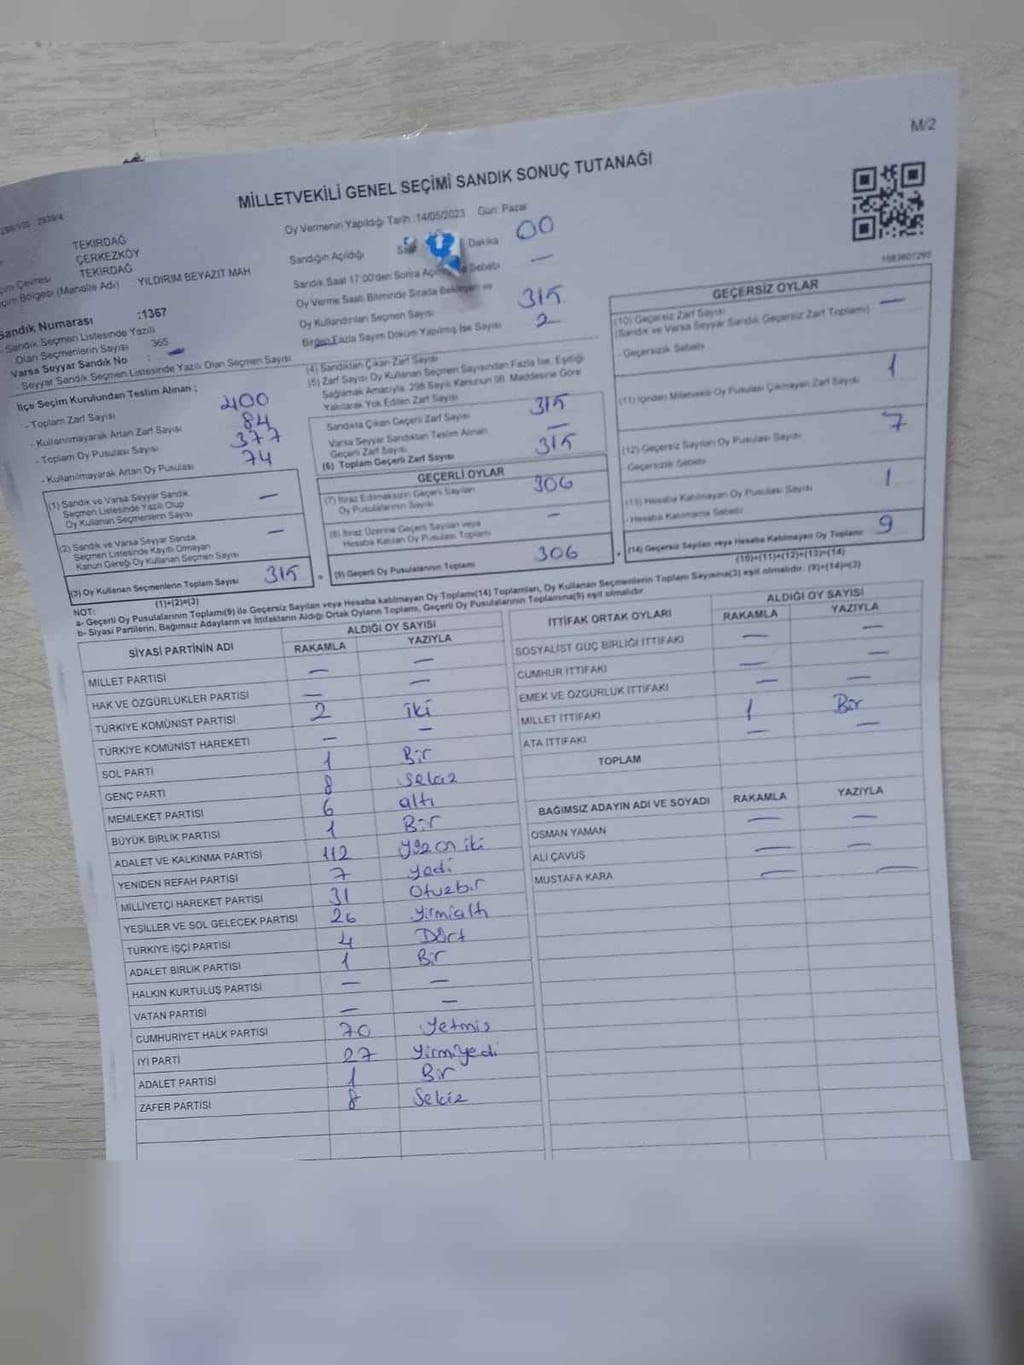 M/2
MİLLETVEKİLİ GENEL SEÇİMİ SANDIK SONUÇ TUTANAĞI
TEKİRDAĞ
ÇERKEZKÖY
TEKİRDAĞ
Bölgesi (Mahalle Adı) YILDIRIM BEYAZIT MAH
Sandık Numarası :1367
Sandık Seçmen Listesinde Yazılı
Olan Seçmenlerin Sayısı 365
Varsa Seyyar Sandık No : —
- Seyyar Sandık Seçmen Listesinde Yazılı Olan Seçmen Sayısı
Oy Vermenin Yapıldığı Tarih :14/05/2023 Gün: Pazar
Sandığın Açıldığı Dakika 00
Sandık Saat 17:00'den Sonra Sebebi —
Oy Verme Saati Bitiminde Sırada Bekleyen ve
Oy Kullandırılan Seçmen Sayısı 315
Birden Fazla Sayım Döküm Yapılmış İse Sayısı 2
İlçe Seçim Kurulundan Teslim Alınan :
- Toplam Zarf Sayısı 400
- Kullanılmayarak Artan Zarf Sayısı 84
- Toplam Oy Pusulası Sayısı 377
- Kullanılmayarak Artan Oy Pusulası 74
(1) Sandık ve Varsa Seyyar Sandık
Seçmen Listesinde Yazılı Olup
Oy Kullanan Seçmenlerin Sayısı —
(2) Sandık ve Varsa Seyyar Sandık
Seçmen Listesinde Kayıtlı Olmayan
Kanun Gereği Oy Kullanan Seçmen Sayısı —
(3) Oy Kullanan Seçmenlerin Toplam Sayısı 315
(1)+(2)=(3)
(4) Sandıktan Çıkan Zarf Sayısı
(5) Zarf Sayısı Oy Kullanan Seçmen Sayısından Fazla İse, Eşitliği
Sağlamak Amacıyla, 298 Sayılı Kanunun 98. Maddesine Göre
Yakılarak Yok Edilen Zarf Sayısı
Sandıkta Çıkan Geçerli Zarf Sayısı 315
Varsa Seyyar Sandıktan Teslim Alınan
Geçerli Zarf Sayısı —
(6) Toplam Geçerli Zarf Sayısı 315
GEÇERLİ OYLAR
(7) İtiraz Edilmeksizin Geçerli Sayılan
Oy Pusulalarının Sayısı 306
(8) İtiraz Üzerine Geçerli Sayılan veya
Hesaba Katılan Oy Pusulası Toplamı —
(9) Geçerli Oy Pusulalarının Toplamı 306
GEÇERSİZ OYLAR
(10) Geçersiz Zarf Sayısı
(Sandık ve Varsa Seyyar Sandık Geçersiz Zarf Toplamı) —
- Geçersizlik Sebebi
(11) İçinden Milletvekili Oy Pusulası Çıkmayan Zarf Sayısı 1
(12) Geçersiz Sayılan Oy Pusulası Sayısı 7
- Geçersizlik Sebebi
(13) Hesaba Katılmayan Oy Pusulası Sayısı 1
- Hesaba Katılmama Sebebi
(14) Geçersiz Sayılan veya Hesaba Katılmayan Oy Toplamı 9
(10)+(11)+(12)+(13)=(14)
NOT:
a- Geçerli Oy Pusulalarının Toplamı(9) ile Geçersiz Sayılan veya Hesaba katılmayan Oy Toplamı(14) Toplamları, Oy Kullanan Seçmenlerin Toplam Sayısına(3) eşit olmalıdır. (9)+(14)=(3)
b- Siyasi Partilerin, Bağımsız Adayların ve İttifakların Aldığı Ortak Oyların Toplamı, Geçerli Oy Pusulalarının Toplamına(9) eşit olmalıdır
SİYASİ PARTİNİN ADI ALDIĞI OY SAYISI
RAKAMLA YAZIYLA
MİLLET PARTİSİ — —
HAK VE ÖZGÜRLÜKLER PARTİSİ — —
TÜRKİYE KOMÜNİST PARTİSİ 2 iki
TÜRKİYE KOMÜNİST HAREKETİ — —
SOL PARTİ 1 Bir
GENÇ PARTİ 8 Sekiz
MEMLEKET PARTİSİ 6 altı
BÜYÜK BİRLİK PARTİSİ 1 Bir
ADALET VE KALKINMA PARTİSİ 112 yüzoniki
YENİDEN REFAH PARTİSİ 7 yedi
MİLLİYETÇİ HAREKET PARTİSİ 31 Otuzbir
YEŞİLLER VE SOL GELECEK PARTİSİ 26 yirmialtı
TÜRKİYE İŞÇİ PARTİSİ 4 Dört
ADALET BİRLİK PARTİSİ 1 Bir
HALKIN KURTULUŞ PARTİSİ — —
VATAN PARTİSİ — —
CUMHURİYET HALK PARTİSİ 70 Yetmiş
İYİ PARTİ 27 Yirmiyedi
ADALET PARTİSİ 1 Bir
ZAFER PARTİSİ 8 Sekiz
İTTİFAK ORTAK OYLARI ALDIĞI OY SAYISI
RAKAMLA YAZIYLA
SOSYALİST GÜÇ BİRLİĞİ İTTİFAKI — —
CUMHUR İTTİFAKI — —
EMEK VE ÖZGÜRLÜK İTTİFAKI — —
MİLLET İTTİFAKI 1 Bir
ATA İTTİFAKI — —
TOPLAM
BAĞIMSIZ ADAYIN ADI VE SOYADI RAKAMLA YAZIYLA
OSMAN YAMAN — —
ALİ ÇAVUŞ — —
MUSTAFA KARA — —